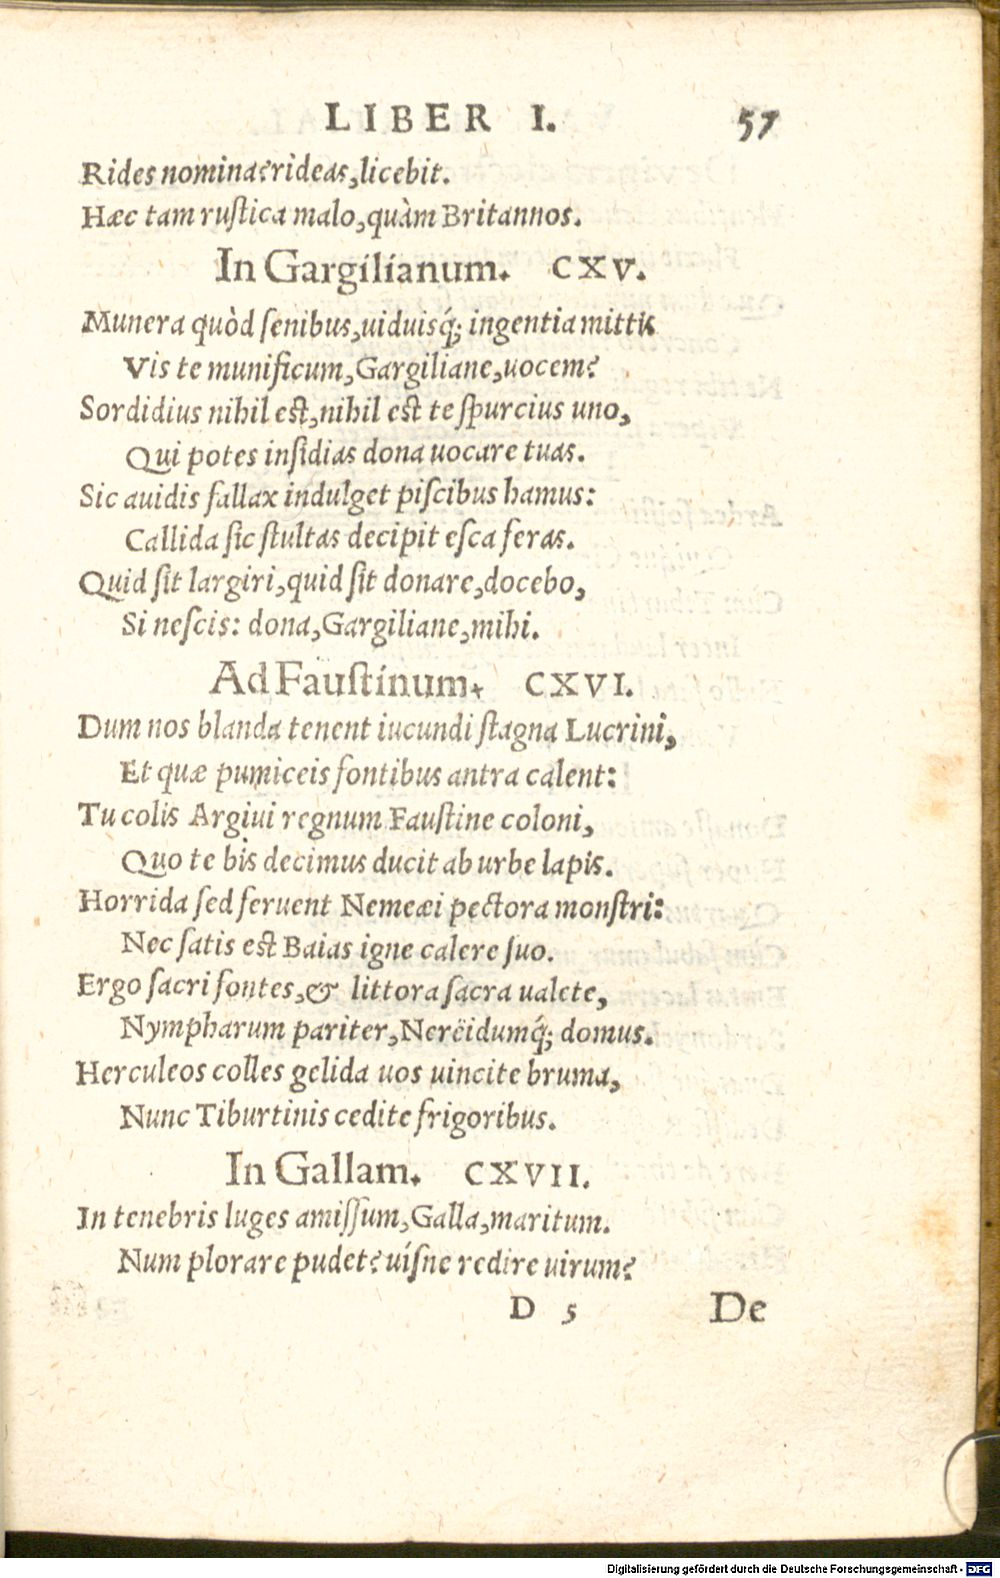 LIBER I. 57
Rides nomina? rìdeas, licebit.
Hæc tam rustica malo, quàm Britannos.
In Gargilianum. CXV.
Munera quòd senibus, uiduisq́; ingentia mittis
Vis te munificum, Gargiliane, uocem?
Sordidius nihil est, nihil est te spurcius uno,
Qui potes insidias dona uocare tuas.
Sic auidis fallax indulget piscibus hamus:
Callida sic stultas decipit esca feras.
Quid sit largiri, quid sit donare, docebo,
Si nescis: dona, Gargiliane, mihi.
Ad Faustinum. CXVI.
Dum nos blanda tenent iucundi stagna Lucrini,
Et quæ pumiceis fontibus antra calent:
Tu colis Argiui regnum Faustine coloni,
Quo te bis decimus ducit ab urbe lapis.
Horrida sed feruent Nemeæi pectora monstri:
Nec satis est Baias igne calere suo.
Ergo sacri fontes, & littora sacra ualete,
Nympharum pariter, Nerëidumq́; domus.
Herculeos colles gelida uos uincite bruma,
Nunc Tiburtinis cedite frigoribus.
In Gallam. CXVII.
In tenebris luges amissum, Galla, maritum.
Num plorare pudet? uísne redire uirum?
D 5 De
Digitalisierung gefördert durch die Deutsche Forschungsgemeinschaft - DFG